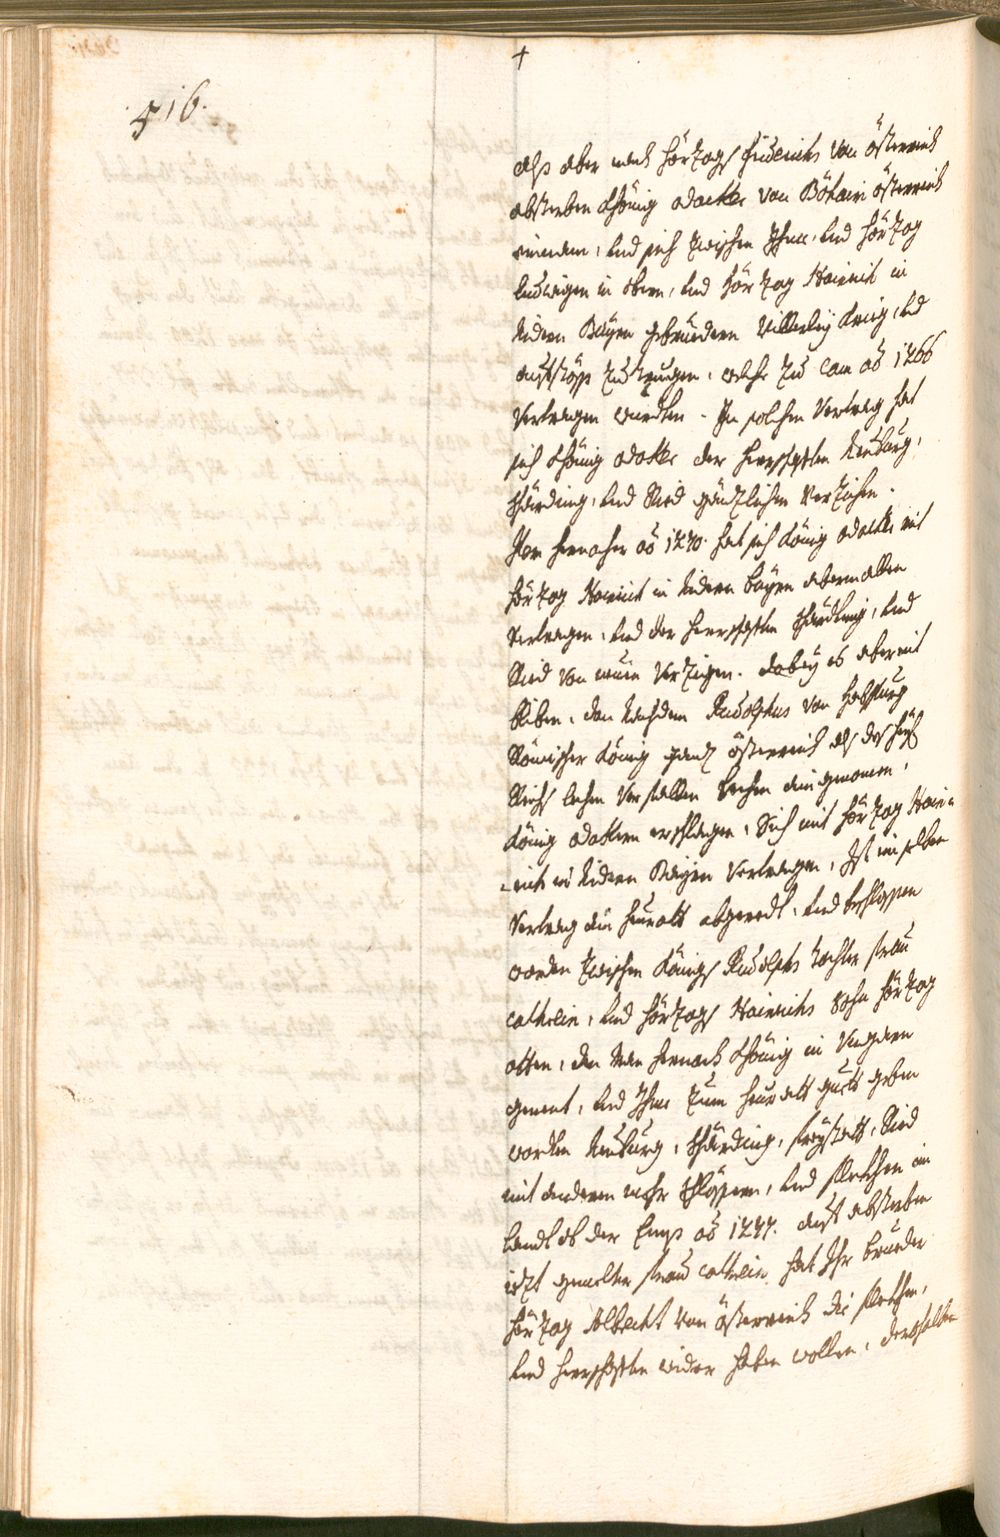 516.
+
alß aber nach Hörzogs Friderichs von Össterreich
absterben Khönig odacker von Böhaim össterreich
einnam, und sich zwischen Ihme, und Hörzog
Ludwigen in obern, und Hörzog Hainrich in
Nidern Bayrn gebrüedern Villerley Krieg, und
auffstöß zuetruegen, welche zu Cam aõ 1266
Vertragen wurdten. In solchen Vertrag hat
sich Khönig odacker der Herrschafften Neuburg,
Schärding, und Ried gänzlichen Verzichen.
Item hernacher aõ 1270. hat sich König odacker mit
Hörzog Hainrich in Nidern Bayrn abermallen
Vertragen, und der Herrschafften Schärding, und
Ried von neuen Verzigen. dabey es aber nit
bliben, dan Nachdem Rudolphus von Habspurg
Römischer König ganz össterreich als des Heyl:
Reichs lechen Verfallen lechen eingenomen,
König odackern erschlagen, Sich mit Hörzog Hain=
=rich in Nidern Bayrn Vertragen, Ist im selben
Vertrag ein Heyratt abgeredt, und beschlossen
worden zwischen Königs Rudolphs dochter frau
Catharin, und Hörzogs Hainrichs Sohn Hörzog
otten, den Man hernach Khönig in Ungarn
genent, und Ihme zum Heyratt guett geben
worden Neuburg, Schärding, freystatt, Ried
mit anderen mehr Schlössern, und fleckhen im
Landt ob der Ennß aõ 1277. auf absterben
iezt gemelter frau Catharin, hat Ihr brueder
Hörzog Albrecht von össterreich die fleckhen,
und herrschafften wider haben wollen, derohalben